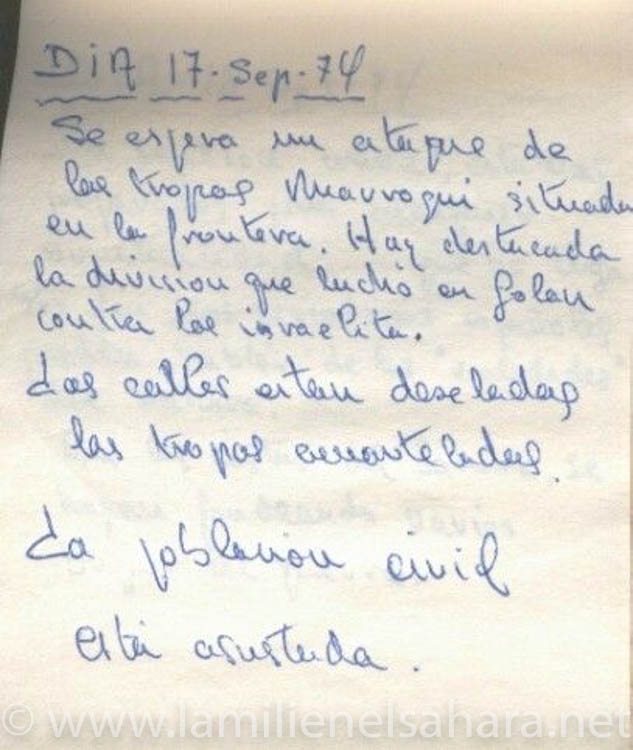 DIA 17. Sep. 74
Se espera un ataque de
las tropas marroqui situada
en la frontera. Hay destacada
la division que luchó en Golan
contra los israelita.
Las calles estan desoladas
las tropas acuarteladas.
La poblacion civil
está asustada.
© www.lamilienelsahara.net